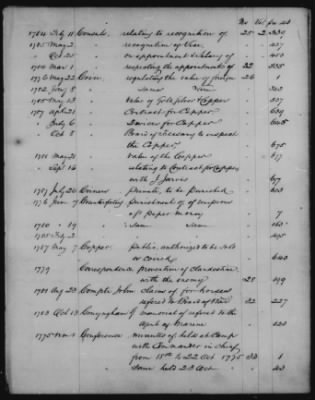 No Vol Page
1784 Feby 11 Consuls, relating to recognition of 25 2 339
1785 May 2 " recognition of Vice 407
" Oct 25 " on appointment & salary of 453
1786 Mar 1 " respecting the appointments of 22 335
1776 May 22 Coin, regulating the value of foreign 26 1
1782 Jany 8 " Same 303
1785 May 13 " Value of Gold Silver & Copper 537
1787 Apl 21 " Contract for Copper 639
" July 6 " Devices for Copper 645
" Oct 8 " Board of Treasury to inspect
the Copper 675
1788 May 21 " Value of the Copper 677
" Sept 16 " relating to Contract for Copper,
with J. Jarvis 697
1787 July 20 Coiners private, to be Punished 653
1776 June 7 Counterfeiting, punishment of
of Paper money 7
1780 " 19 " Same
1787 May 7 Copper public, authorized to be sold
or coined 643
1779 Correspondence Prevention of clandestine
with the enemy 28 199
1781 Aug 23 John claims of for horses
refered to Board of War 22 227
1783 Oct 13 Conyngham G memorial of refered to the
Agent of Marine
1775 Nov 1 Conference minutes of held at Camp
with Commander in chief,
from 18th to 22 Oct 1775 33 1
Same held 23 Oct